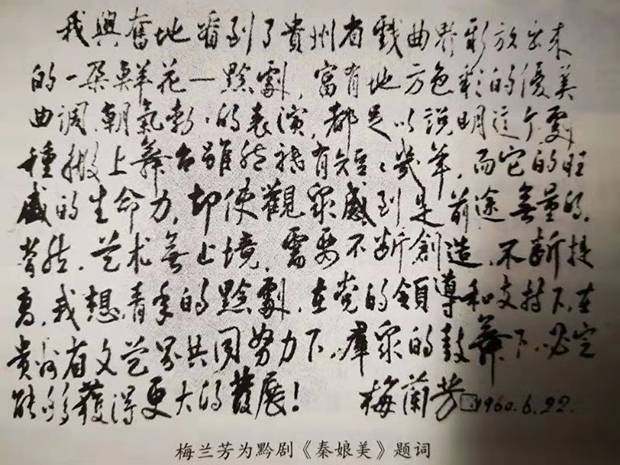 我興奮地看到了貴州省戲曲界新放出来
的一朵鮮花—黔劇，富有地方色彩的優美
曲調，朝氣勃〻的表演，都足以説明这个劇
種搬上舞台雖然祗有短〻幾年，而它的旺
盛的生命力，却使觀眾感到是前途無量的，
當然，芸术無止境，需要不断創造，不断提
高，我想，青年的黔劇，在党的領導和支持下，在
貴州省文芸界共同努力下，群眾的鼓舞下，必定
能够獲得更大的發展！ 梅蘭芳 1960.6.22.
梅兰芳为黔剧《秦娘美》题词